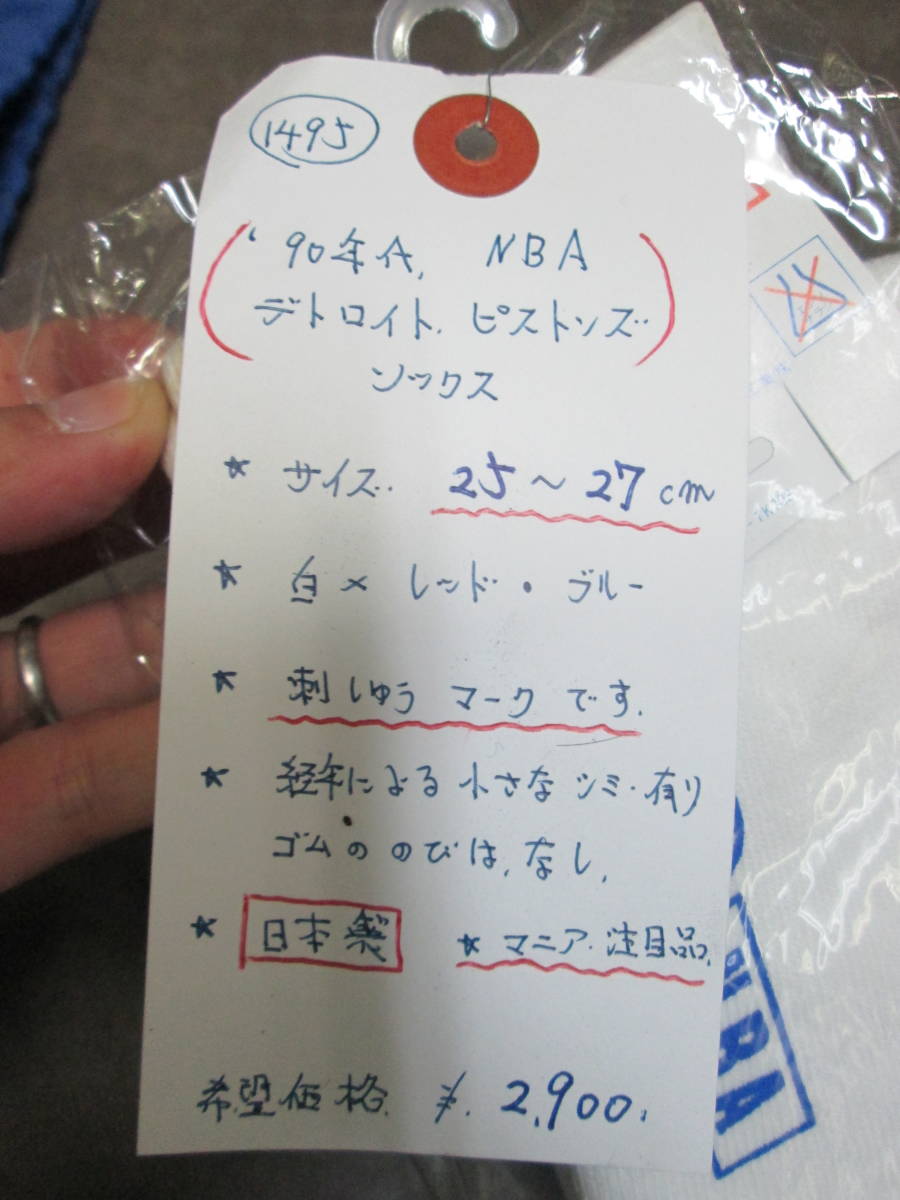 1495
'90年代, NBA
デトロイト.ピストンズ
ソックス
★ サイズ. 25～27cm
★ 白×レッド・ブルー
★ 刺しゅうマークです.
★ 経年による小さなシミ・有り
ゴムののびは,なし.
★ 日本製 ★マニア・注目品.
希望価格. ¥.2,900.
NBA